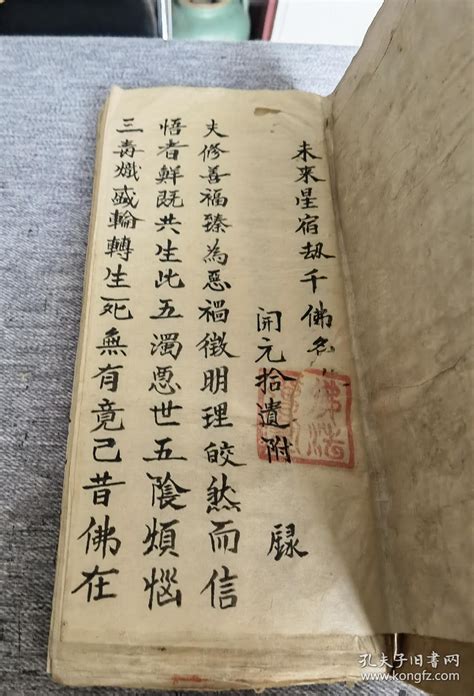 未來星宿劫千佛名
開元拾遺附 録
夫修善福臻為惡禍徵明理皎然而信
悟者鮮既共生此五濁惡世五陰煩惱
三毒熾盛輪轉生死無有竟已昔佛在
孔夫子旧书网
www.kongfz.com